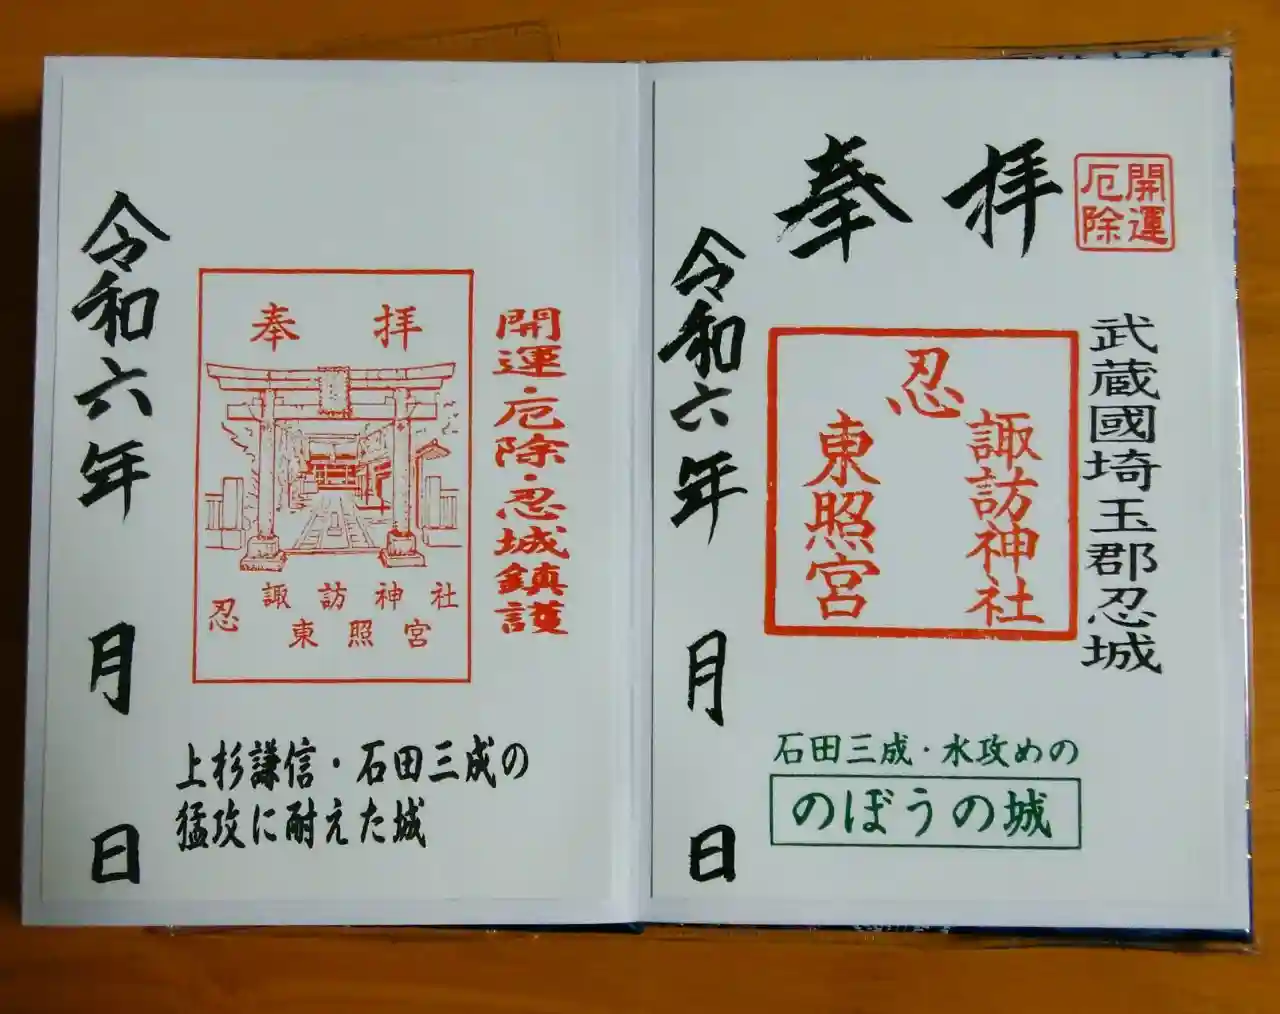 開運
厄除
奉拝
武蔵國埼玉郡忍城
忍
諏訪神社
東照宮
石田三成・水攻めの
のぼうの城
令和六年 月 日
開運・厄除・忍城鎮護
奉拝
諏訪神社
忍
東照宮
上杉謙信・石田三成の
猛攻に耐えた城
令和六年 月 日